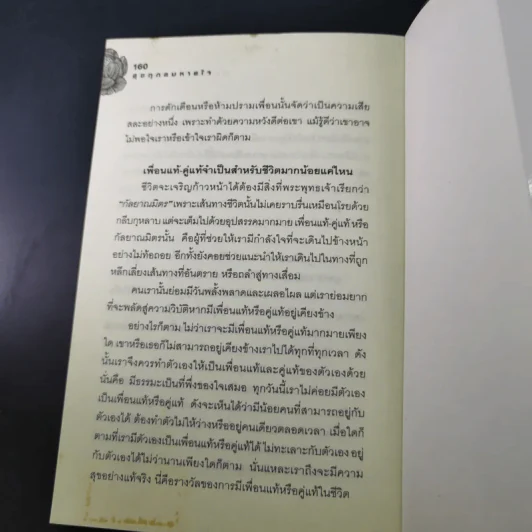 160
สุขทุกลมหายใจ
การตักเตือนหรือห้ามปรามเพื่อนนั้นจัดว่าเป็นความเสีย
สละอย่างหนึ่ง เพราะทำด้วยความหวังดีต่อเขา แม้รู้ดีว่าเขาอาจ
ไม่พอใจเราหรือเข้าใจเราผิดก็ตาม
เพื่อนแท้-คู่แท้จำเป็นสำหรับชีวิตมากน้อยแค่ไหน
ชีวิตจะเจริญก้าวหน้าได้ต้องมีสิ่งที่พระพุทธเจ้าเรียกว่า
"กัลยาณมิตร" เพราะเส้นทางชีวิตนั้นไม่เคยราบรื่นเหมือนโรยด้วย
กลีบกุหลาบ แต่จะเต็มไปด้วยอุปสรรคมากมาย เพื่อนแท้-คู่แท้ หรือ
กัลยาณมิตรนั้น คือผู้ที่ช่วยให้เรามีกำลังใจที่จะเดินไปข้างหน้า
อย่างไม่ท้อถอย อีกทั้งยังคอยช่วยแนะนำให้เราเดินไปในทางที่ถูก
หลีกเลี่ยงเส้นทางที่อันตราย หรือถลำสู่ทางเสื่อม
คนเรานั้นย่อมมีวันพลั้งพลาดและเผลอไผล แต่เราย่อมยาก
ที่จะพลัดสู่ความวิบัติหากมีเพื่อนแท้หรือคู่แท้อยู่เคียงข้าง
อย่างไรก็ตาม ไม่ว่าเราจะมีเพื่อนแท้หรือคู่แท้มากมายเพียง
ใด เขาหรือเธอก็ไม่สามารถอยู่เคียงข้างเราไปได้ทุกที่ทุกเวลา ดัง
นั้นเราจึงควรทำตัวเองให้เป็นเพื่อนแท้และคู่แท้ของตัวเองด้วย
นั่นคือ มีธรรมะเป็นที่พึ่งของใจเสมอ ทุกวันนี้เราไม่ค่อยมีตัวเอง
เป็นเพื่อนแท้หรือคู่แท้ ดังจะเห็นได้ว่ามีน้อยคนที่สามารถอยู่กับ
ตัวเองได้ ต้องทำตัวไม่ให้ว่างหรืออยู่คนเดียวตลอดเวลา เมื่อใดก็
ตามที่เรามีตัวเองเป็นเพื่อนแท้หรือคู่แท้ได้ ไม่ทะเลาะกับตัวเอง อยู่
กับตัวเองได้ไม่ว่านานเพียงใดก็ตาม นั่นแหละเราถึงจะมีความ
สุขอย่างแท้จริง นี่คือรางวัลของการมีเพื่อนแท้หรือคู่แท้ในชีวิต